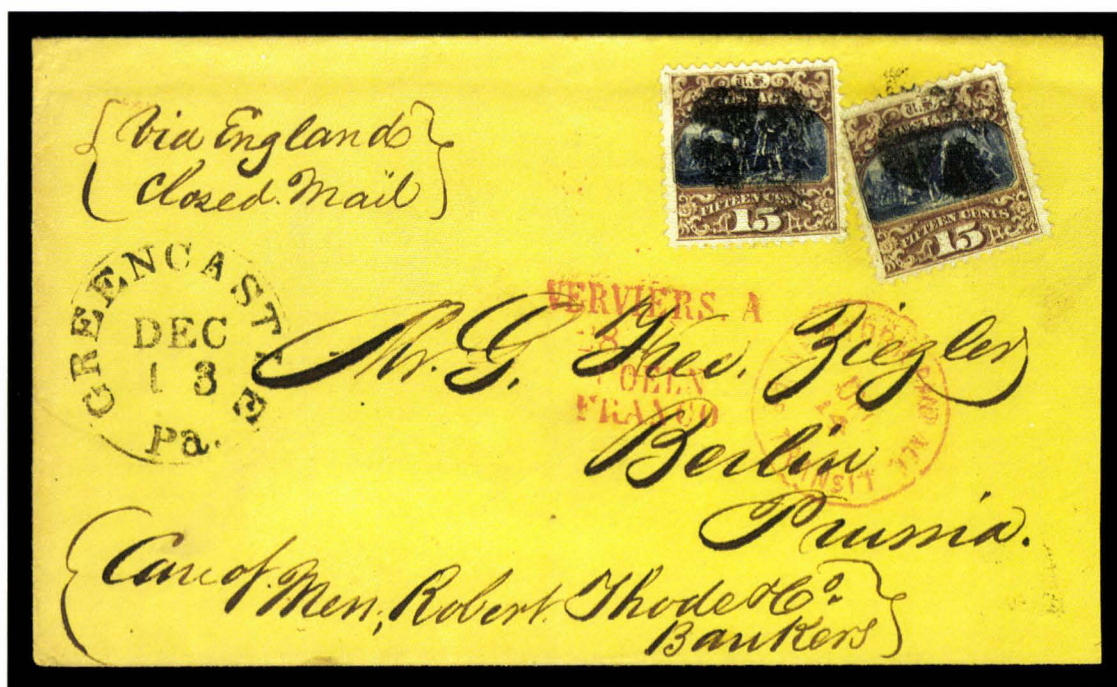 Via England
Closed Mail
U.S.
POSTAGE
FIFTEEN CENTS
15
U.S.
FIFTEEN CENTS
15
GREENCASTLE
DEC
13
Pa.
VERVIERS. A
COELN
FRANCO
Mr. G. Theo. Ziegler
Berlin
Prussia.
TRANSIT
Care of Mess, Robert Thode & Co.
Bankers